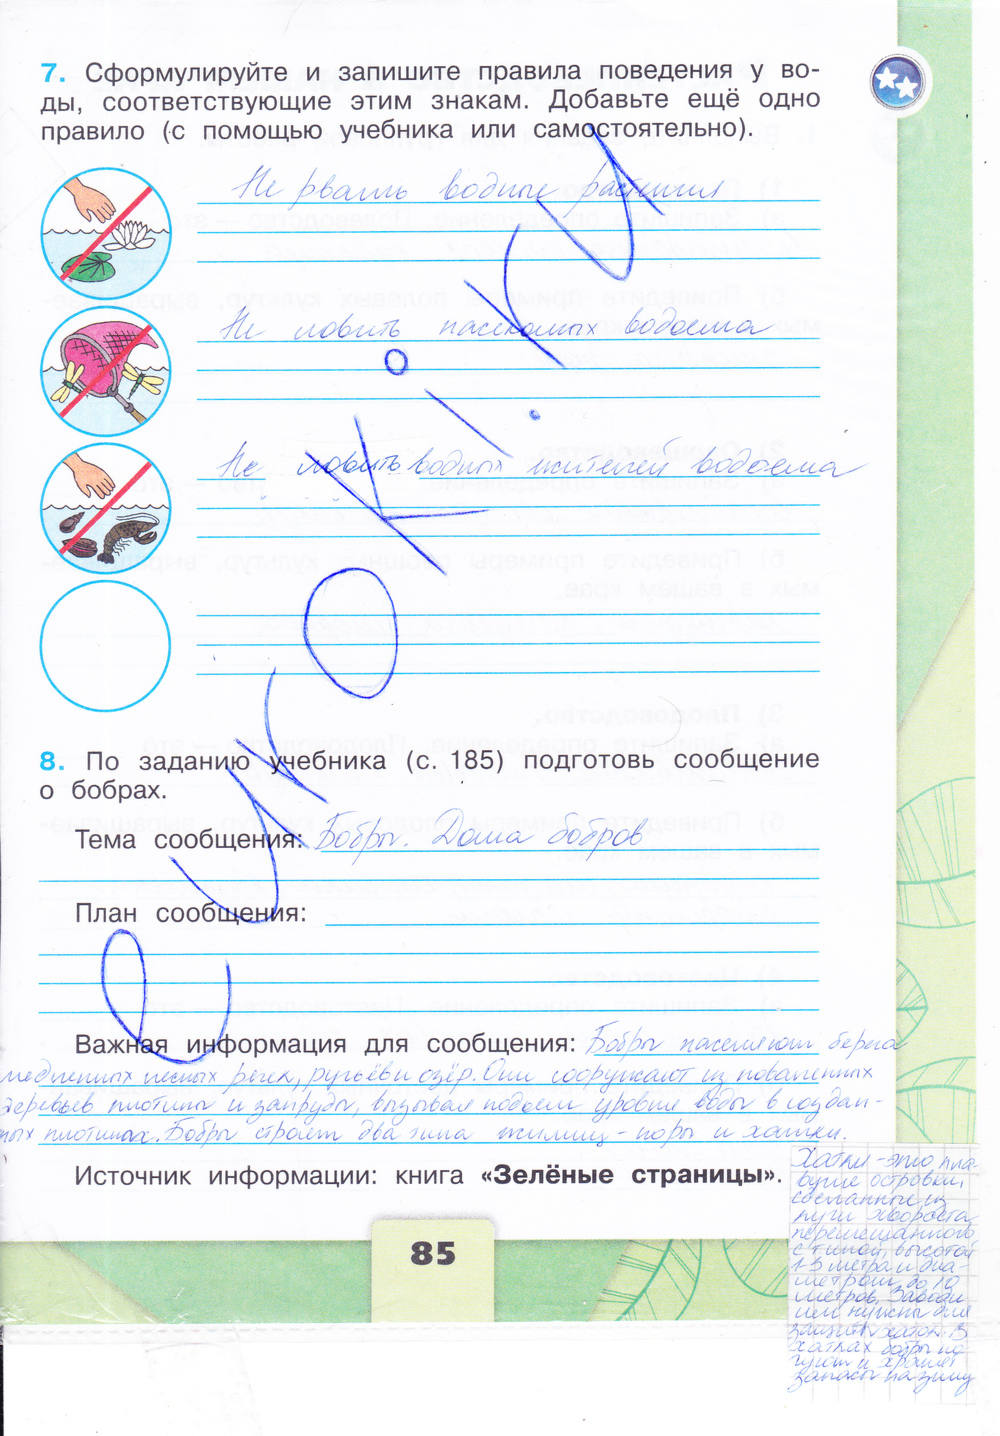 7. Сформулируйте и запишите правила поведения у во-
ды, соответствующие этим знакам. Добавьте ещё одно
правило (с помощью учебника или самостоятельно).
Не рвать водные растения
Не ловить насекомых водоема
Не ловить водных жителей водоема
8. По заданию учебника (с. 185) подготовь сообщение
о бобрах.
Тема сообщения: Бобры. Дома бобров
План сообщения:
Важная информация для сообщения: Бобры населяют берега
медленных лесных речек, ручьёв и озёр. Они сооружают из поваленных
деревьев плотины и запруды, вызывая подъем уровня воды в создан-
ных плотинах. Бобры строят два типа жилищ - норы и хатки.
Источник информации: книга «Зелёные страницы».
Хатки - это пла-
вучие островки,
сделанные из
кучи хвороста,
перемешанного
с тиной, высотой
1-3 метра и диа-
метром до 10
метров. Заводи
им нужны для
защиты хаток. В
хатках бобры но-
чуют и хранят
запасы на зиму
85
eurokі.ru